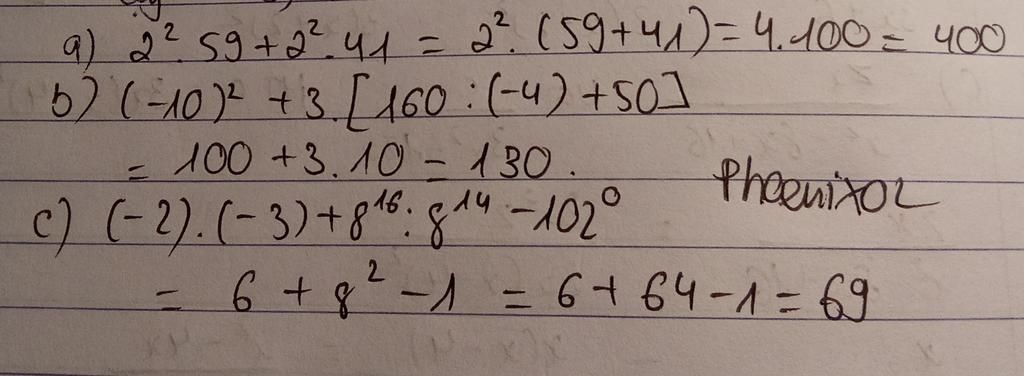 a) 2². 59 + 2². 41 = 2². (59 + 41) = 4. 100 = 400
b) (-10)² + 3. [160 : (-4) + 50]
= 100 + 3. 10 = 130.
PhoenixOL
c) (-2). (-3) + 8¹⁶ : 8¹⁴ - 102⁰
= 6 + 8² - 1 = 6 + 64 - 1 = 69